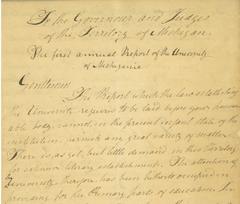 To the Governour and Judges
of the Territory of Michigan.
The first annual Report of the University
of Michigania
Gentlemen
The Report which the law establishing
the University requires to be laid before your honour
able body, cannot, in the present infant state of the
institution, furnish any great variety of matter.
There is, as yet, but little demand in this Territory
for literary establishments. The attention of
University therefore has been hitherto occupied in
providing for the primary parts of education. In